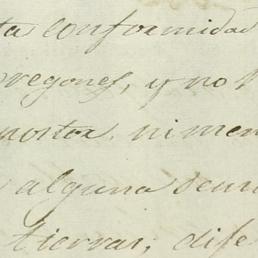 ta conformidad
pregones, y no
postor, ni men
alguna
tierras, dife